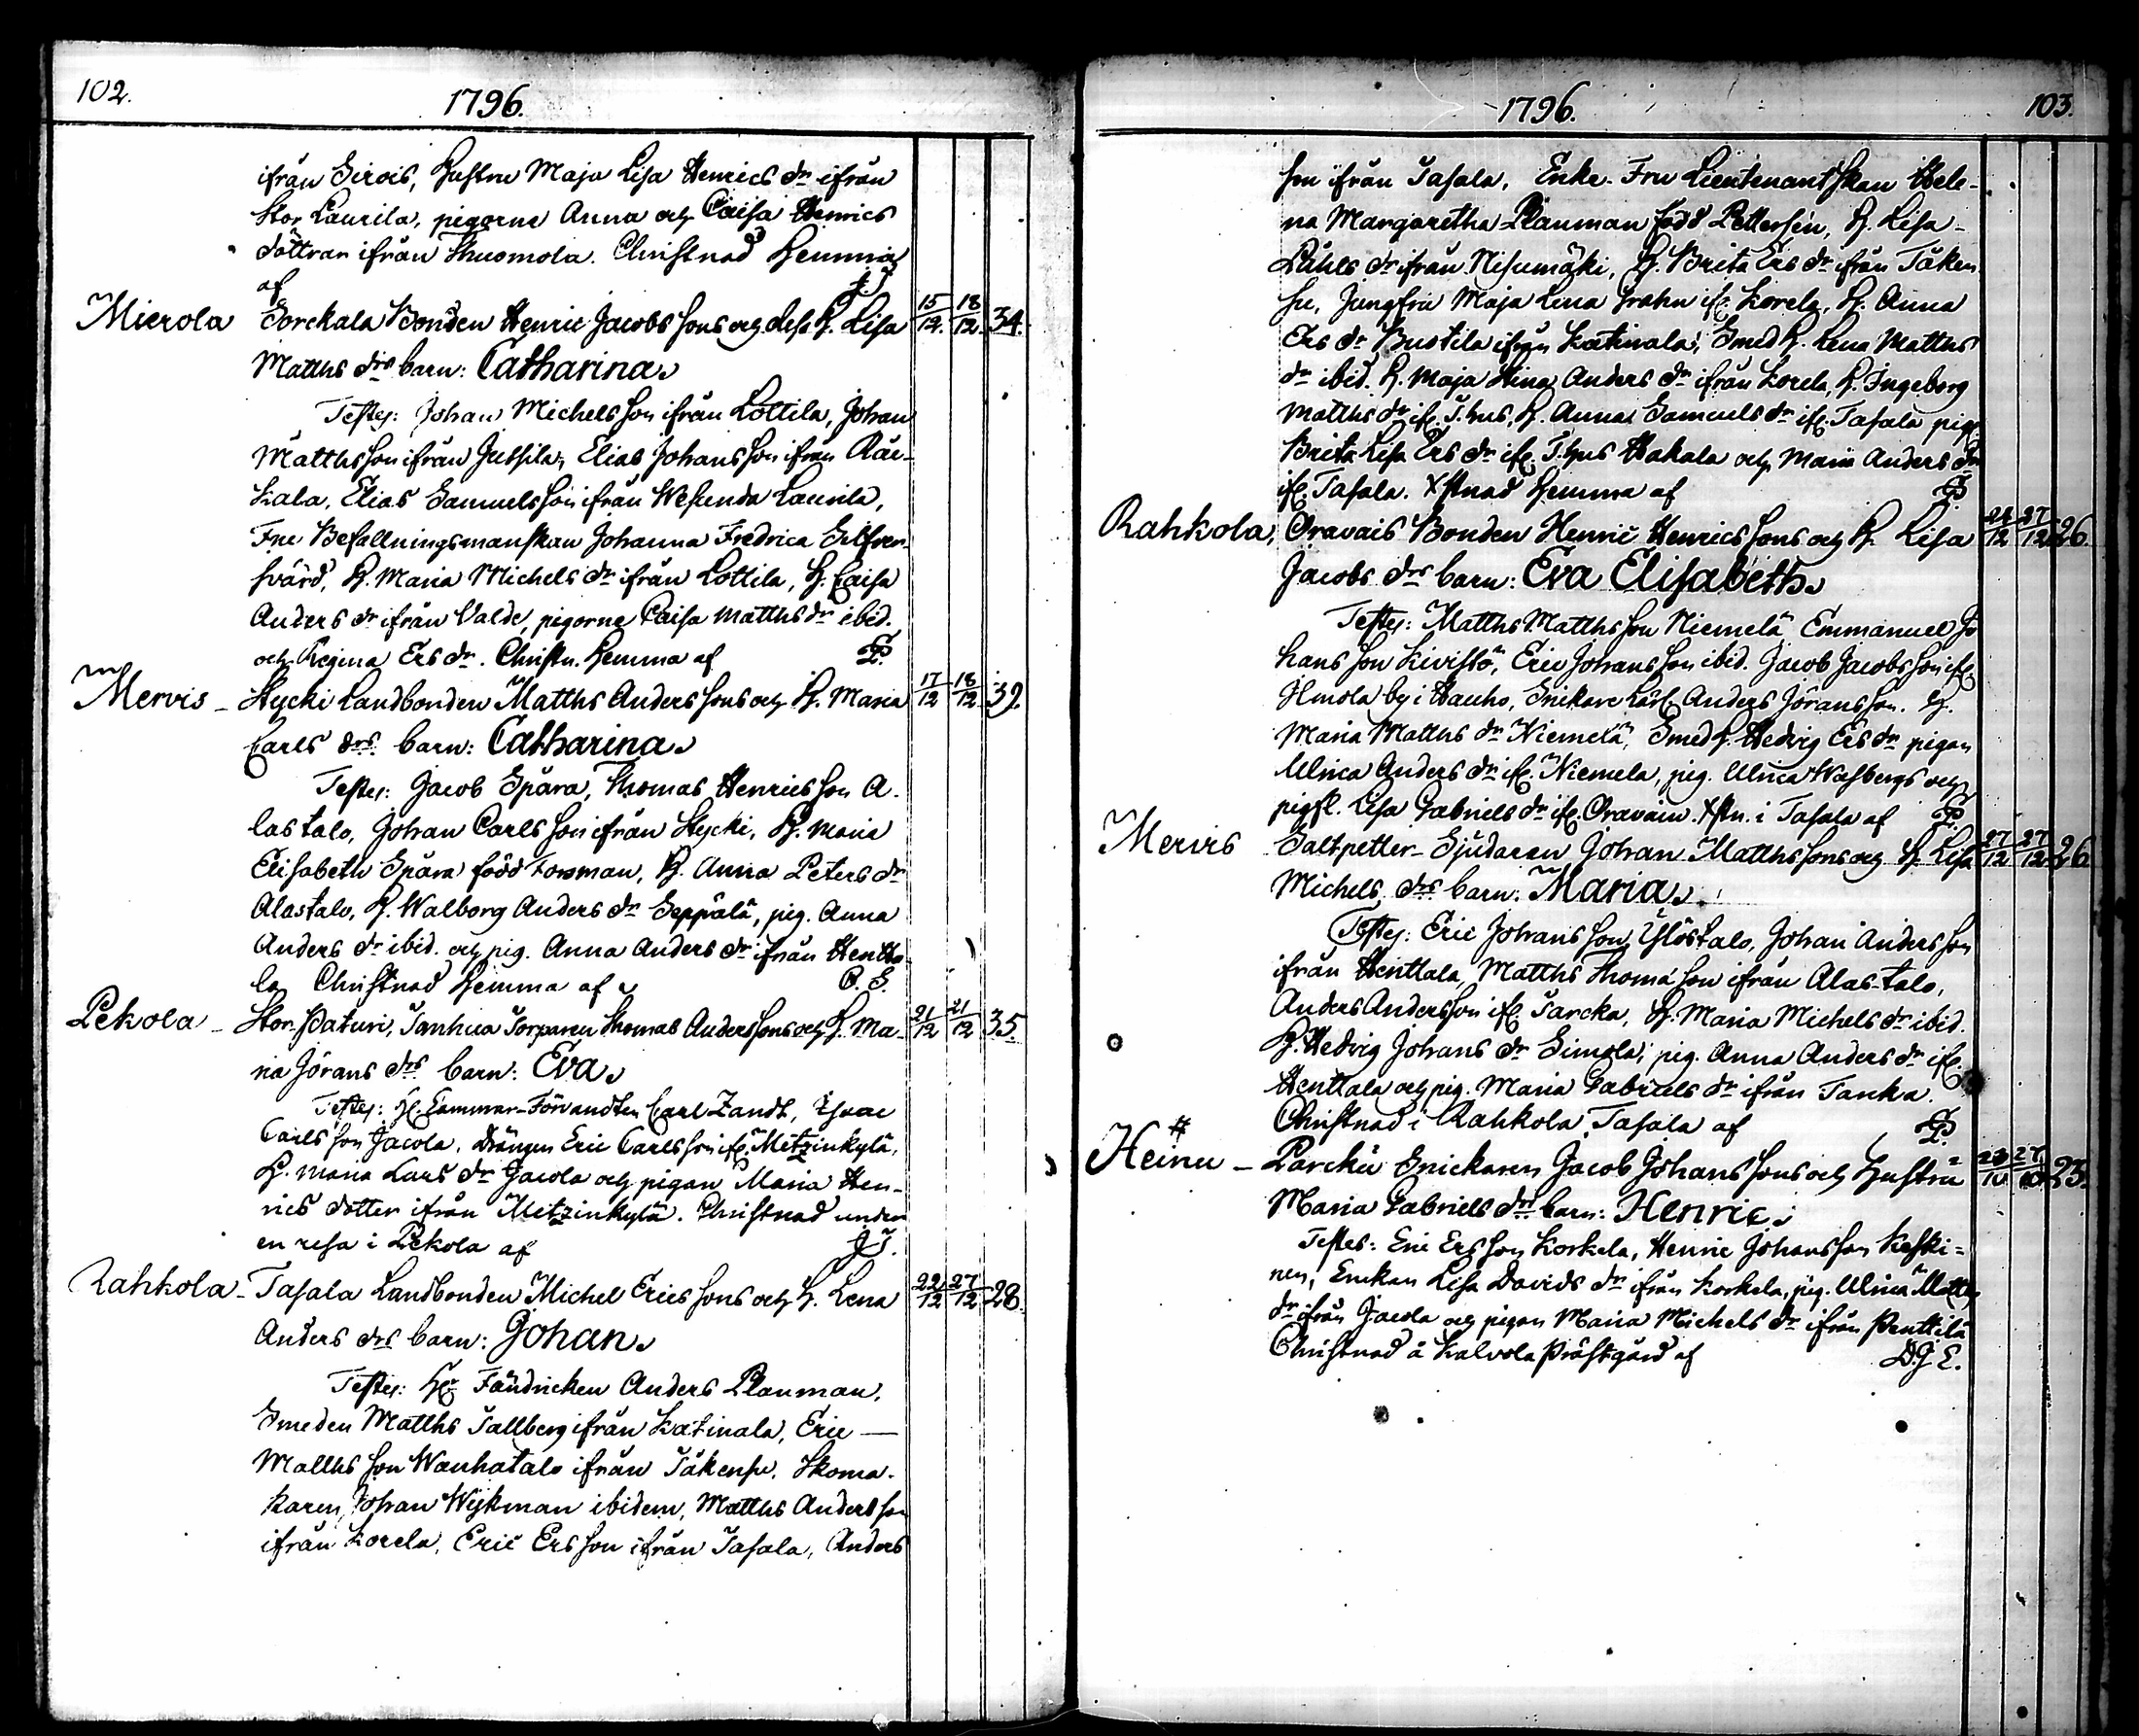 102.
1796.
ifrån Sirois, Hustru Maja Lisa Henrics dr ifrån
Stor Laurila, pigorne Anna och Caisa Henrics
döttrar ifrån Thuomola. Christnad hemma
af
Mierola Sorckala Bonden Henric Jacobs sons och dess h. Lisa 15/12. 18/12. 34.
Matths drs barn: Catharina.
Testes: Johan Michelsson ifrån Lottila, Johan
Matthsson ifrån Jussila, Elias Johansson ifrån Räi-
kala, Elias Samuelsson ifrån Laurila,
Fru Befallningsmanskan Johanna Fredrica Silfver-
svärd, H. Maria Michels dr ifrån Lottila, H. Caisa
Anders dr ifrån Valde, pigorne Caisa Matths dr ibid.
och Regina Ers dr. Christn. hemma af P.
Mervis - Stycki Landbonden Matths Anders sons och H. Maria 17/12 18/12 39.
Carls drs barn: Catharina.
Testes: Jacob Spåra, Thomas Henrics son A-
lastalo, Johan Carls son ifrån Stycki, H. Maria
Elisabeth Spåra född Forsman, H. Anna Peters dr
Alastalo, H. Walborg Anders dr Seppälä, pig. Anna
Anders dr ibid. och pig. Anna Anders dr ifrån Hentta-
la Christnad hemma af
Pekola - Stor-Paturi, Tanhua Torparen Thomas Anders sons och H. Ma- 21/12 21/12 35.
ria Jörans drs barn: Eva.
Testes: Hr. Cammar-Förvandten Carl Zandt, Isaac
Carls son Jacola, Drängen Eric Carlsson ifr. Metzinkylä,
H. Maria Lars dr Jacola och pigan Maria Hen-
rics dotter ifrån Metzinkylä. Christnad under
en resa i Pekola af
Rahkola - Tasala Landbonden Michel Erics sons och H. Lena 22/12 27/12 28.
Anders drs barn: Johan.
Testes: Hr Fändricken Anders Plauman,
Smeden Matths Tallberg ifrån Katinala, Eric —
Matths son Wanhatalo ifrån Täkensu. Skoma-
karen Johan Wijkman ibidem, Matths Anders son
ifrån Korela, Eric Ers son ifrån Tasala, Anders
1796.
103.
son ifrån Tasala, Enke-Fru Lieutenantskan Hele-
na Margaretha Plauman född Pettersén, H. Lisa
Påhls dr ifrån Nisumäki, H. Brita Ers dr ifrån Täken
su, Jungfru Maja Lena ifr. Korela, H. Anna
Ers dr Bustila ifrån Katinala, Smed h. Lena Matths
dr ibid. H. Maja Stina Anders dr ifrån Korela, H. Ingeborg
Matths dr ifr. T.hus, H. Anna Samuels dr ifr. Tasala pig.
Brita Lisa Ers dr ifr. T.hus Hakala och Maria Anders dr
ifr. Tasala. Xstnad hemma af P.
Rahkola, Oravais Bonden Henric Henrics sons och H. Lisa 27/12 26.
Jacobs drs barn: Eva Elisabeth.
Testes: Matths Matthsson Niemelä Emmanuel Jo
hans son Kivistö, Eric Johans son ibid. Jacob Jacobs son ifr.
Ilmola by i Hauho, Snickare Lärl. Anders Jöransson. H.
Maria Matths dr Niemelä, Smed h. Hedvig Ers dr pigan
Ulrica Anders dr ifr. Niemelä, pig. Ulrica och
pigfl. Lisa Gabriels dr ifr. Oravain. Xstn. i Tasala af P.
Mervis Saltpetter-Sjudaren Johan Matths sons och H. Lisa 27/12 27/12 26
Michels drs barn: Maria.
Testes: Eric Johans son Ylöstalo, Johan Anders son
ifrån Henttala, Matths Thomæ son ifrån Alas-talo,
Anders Andersson ifr. Parcka, H. Maria Michels dr ibid.
H. Hedvig Johans dr Simola, pig. Anna Anders dr ifr.
Henttala och pig. Maria Gabriels dr ifrån Tanka.
Christnad i Rahkola Tasala af P.
#
Heinu - Parckü Snickaren Jacob Johans sons och hustru 23.
Maria Gabriels drs barn: Henric.
Testes: Eric Ers son Korkela, Henric Johansson Keski-
nen, Enkan Lisa Davids dr ifrån Korkela, pig. Ulrica Matths
dr ifrån Jacola och pigan Maria Michels dr ifrån Penttilä
Christnad å Kalvola Prästgård af D.G.E.